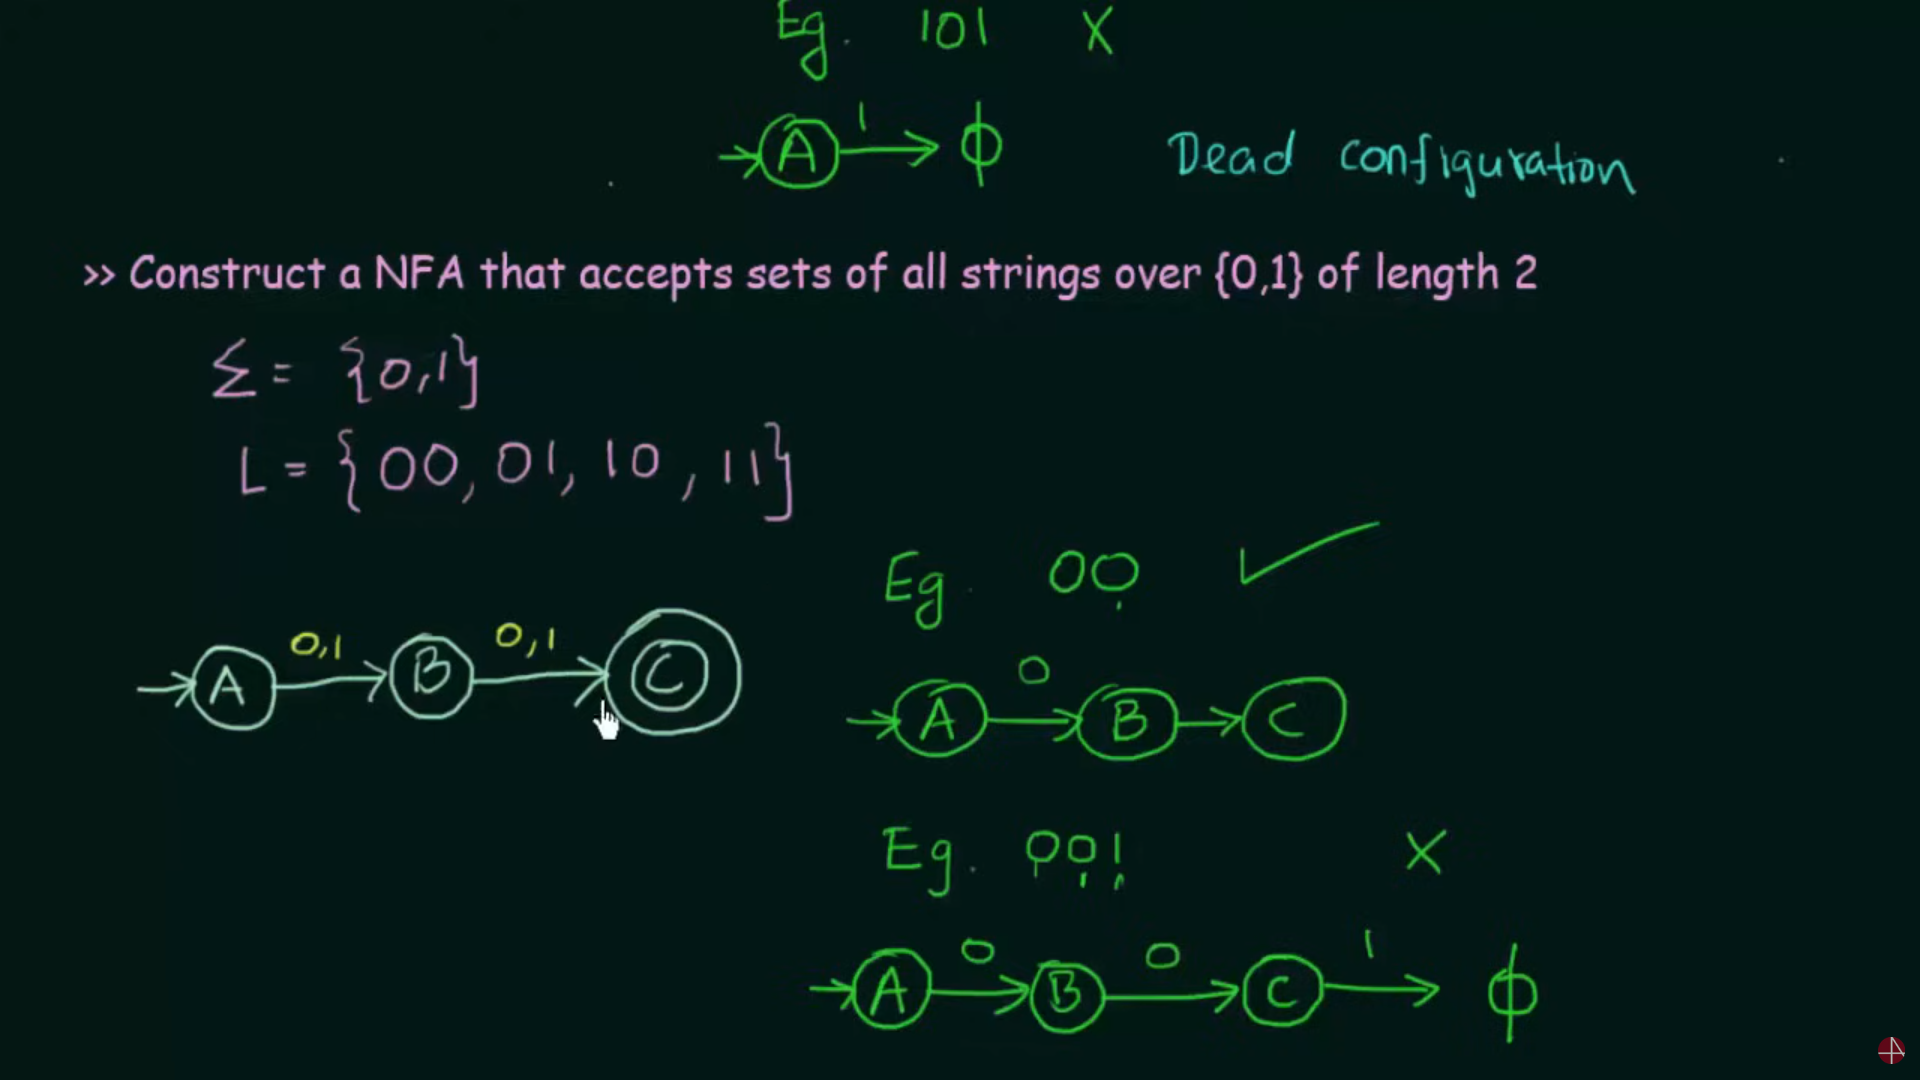 Eg. 101 X
→ A 1 → ϕ Dead configuration
>> Construct a NFA that accepts sets of all strings over {0,1} of length 2
Σ = {0,1}
L = {00, 01, 10, 11}
Eg. 00 ✓
→ A 0,1 → B 0,1 → C
→ A 0 → B → C
Eg. 001 X
→ A 0 → B 0 → C 1 → ϕ